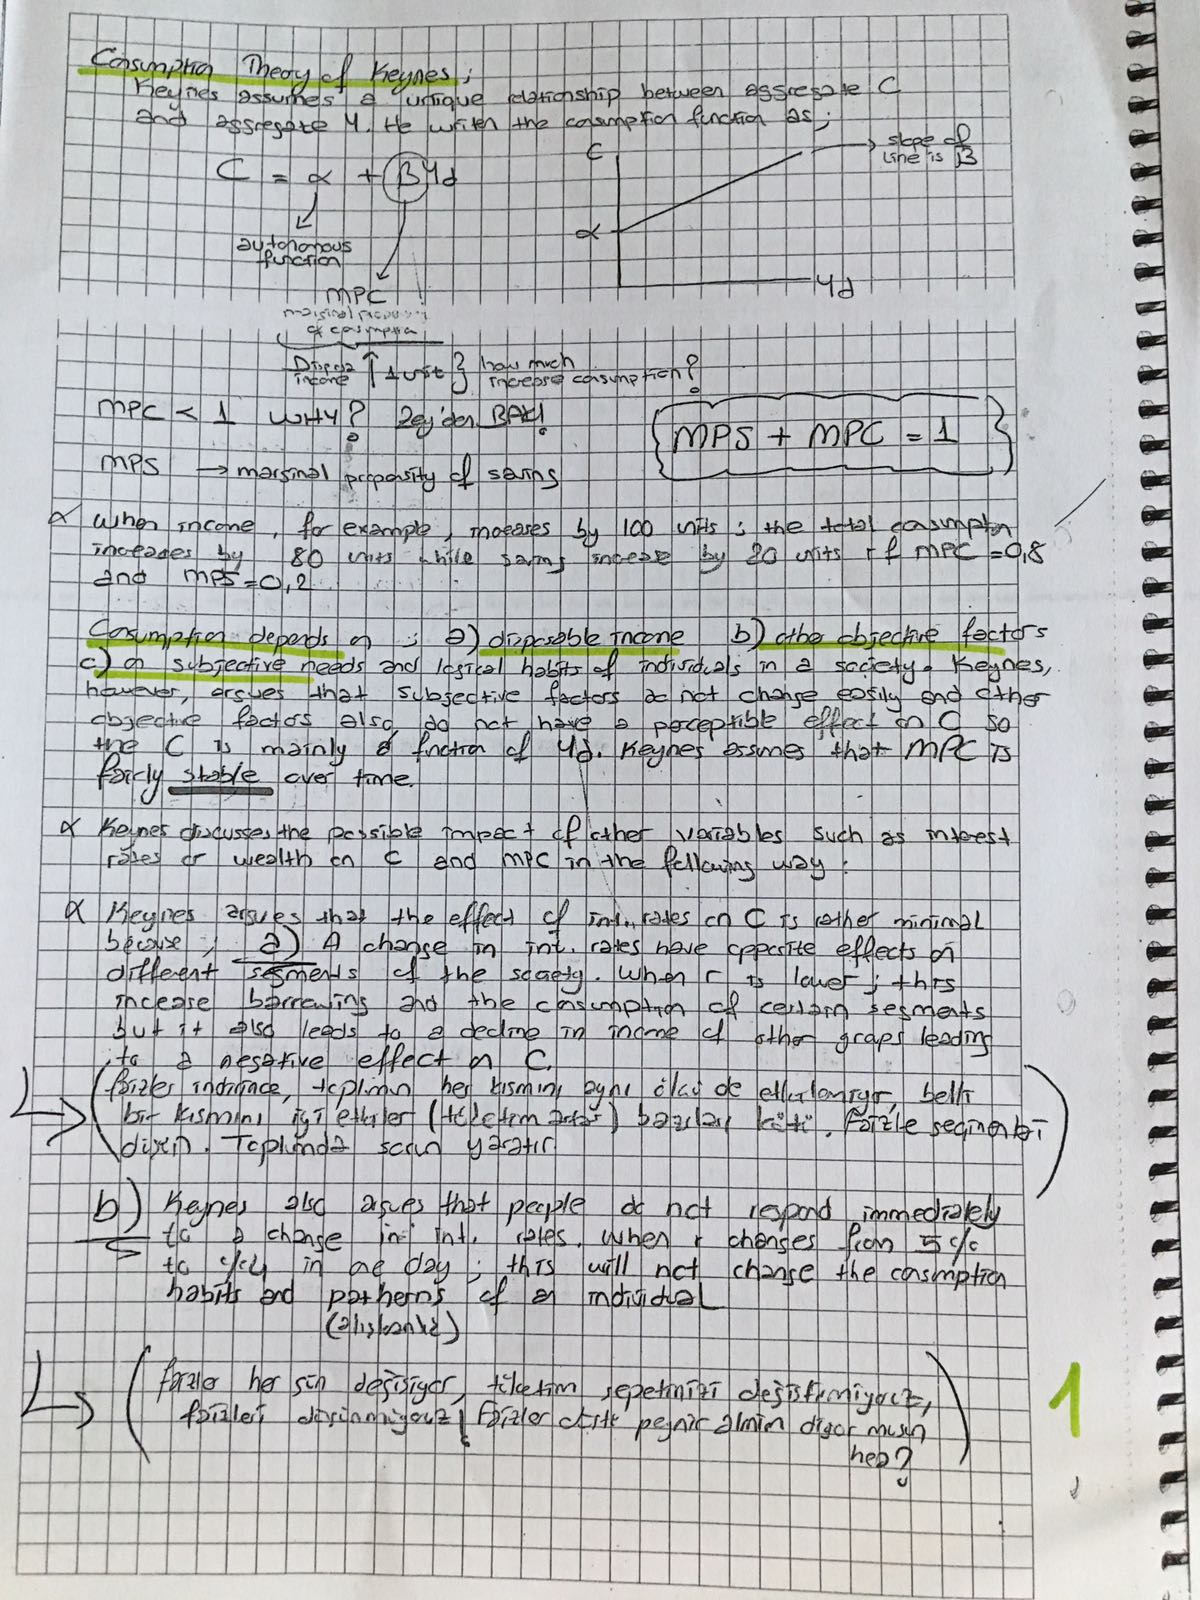 Consumption Theory of Keynes;
Keynes assumes a unique relationship between aggregate C
and aggregate Y. He writen the cosumption function as;
C = α + βYd
autonomous
function
MPC
marginal propensity
of cosumption
C
α
Yd
slope of
line is β
income ↑ 1 unit } how much
increase cosumption?
MPC < 1 WHY? BAK!
MPS + MPC = 1
MPS → marginal propensity of saving
α When income, for example, increases by 100 units; the total cosumption
increases by 80 units while saving increase by 20 units if MPC = 0,8
and MPS = 0,2
Cosumption depends on; a) disposable income b) other objective factors
c) on subjective needs and logical habits of individuals in a society. Keynes,
however, argues that subjective factors do not change easily and other
objective factors also do not have a perceptible effect on C so
the C is mainly a function of Yd. Keynes assumes that MPC is
fairly stable over time.
α Keynes discusses the possible impact of other variables such as interest
rates or wealth on C and MPC in the following way:
α Keynes argues that the effect of int. rates on C is rather minimal
because; a) A change in int. rates have opposite effects on
different segments of the society. When r is lower; this
increase barrowing and the consumption of certain segments
but it also leads to a decline in income of other graps leading
to a negative effect on C.
(faizler indirince, toplumun her kısmını aynı ölçüde etkilemiyor, belli
bir kısmını iyi etkiler (tüketim artar) bazıları kötü. Faizle geçinen
düşün. Toplumda sorun yaratır.)
b) Keynes also argues that people do not respond immediately
to a change in int. rates. When r changes from 5%
to %4 in one day; this will not change the cosumption
habits and patherns of an individual
(alışkanlık)
(faizler her gün değişiyor, tüketim sepetimizi değiştirmiyoruz,
faizleri düşünmüyoruz! Faizler düştü peynir alayım diyor musun
hep?)
1